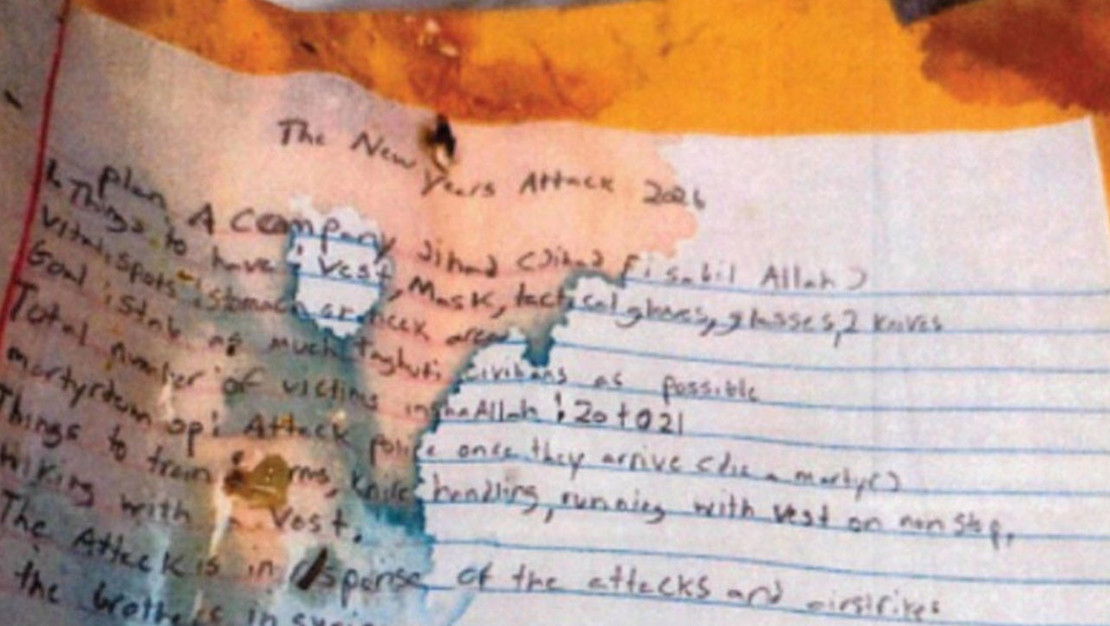 The New Years Attack 2026
plan A Company Jihad (Jihad fi sabil Allah)
Things to have: Vest, Mask, tactical gloves, glasses, 2 knives
Vital spots: stomach or neck area
Goal: Stab as much taghuti civilians as possible
Total number of victims inshaAllah: 20 to 21
martyrdom op: Attack police once they arrive (die a martyr)
Things to train: Arms, Knife handling, running with vest on non stop,
Hiking with a Vest.
The Attack is in response of the attacks and airstrikes
the brothers in